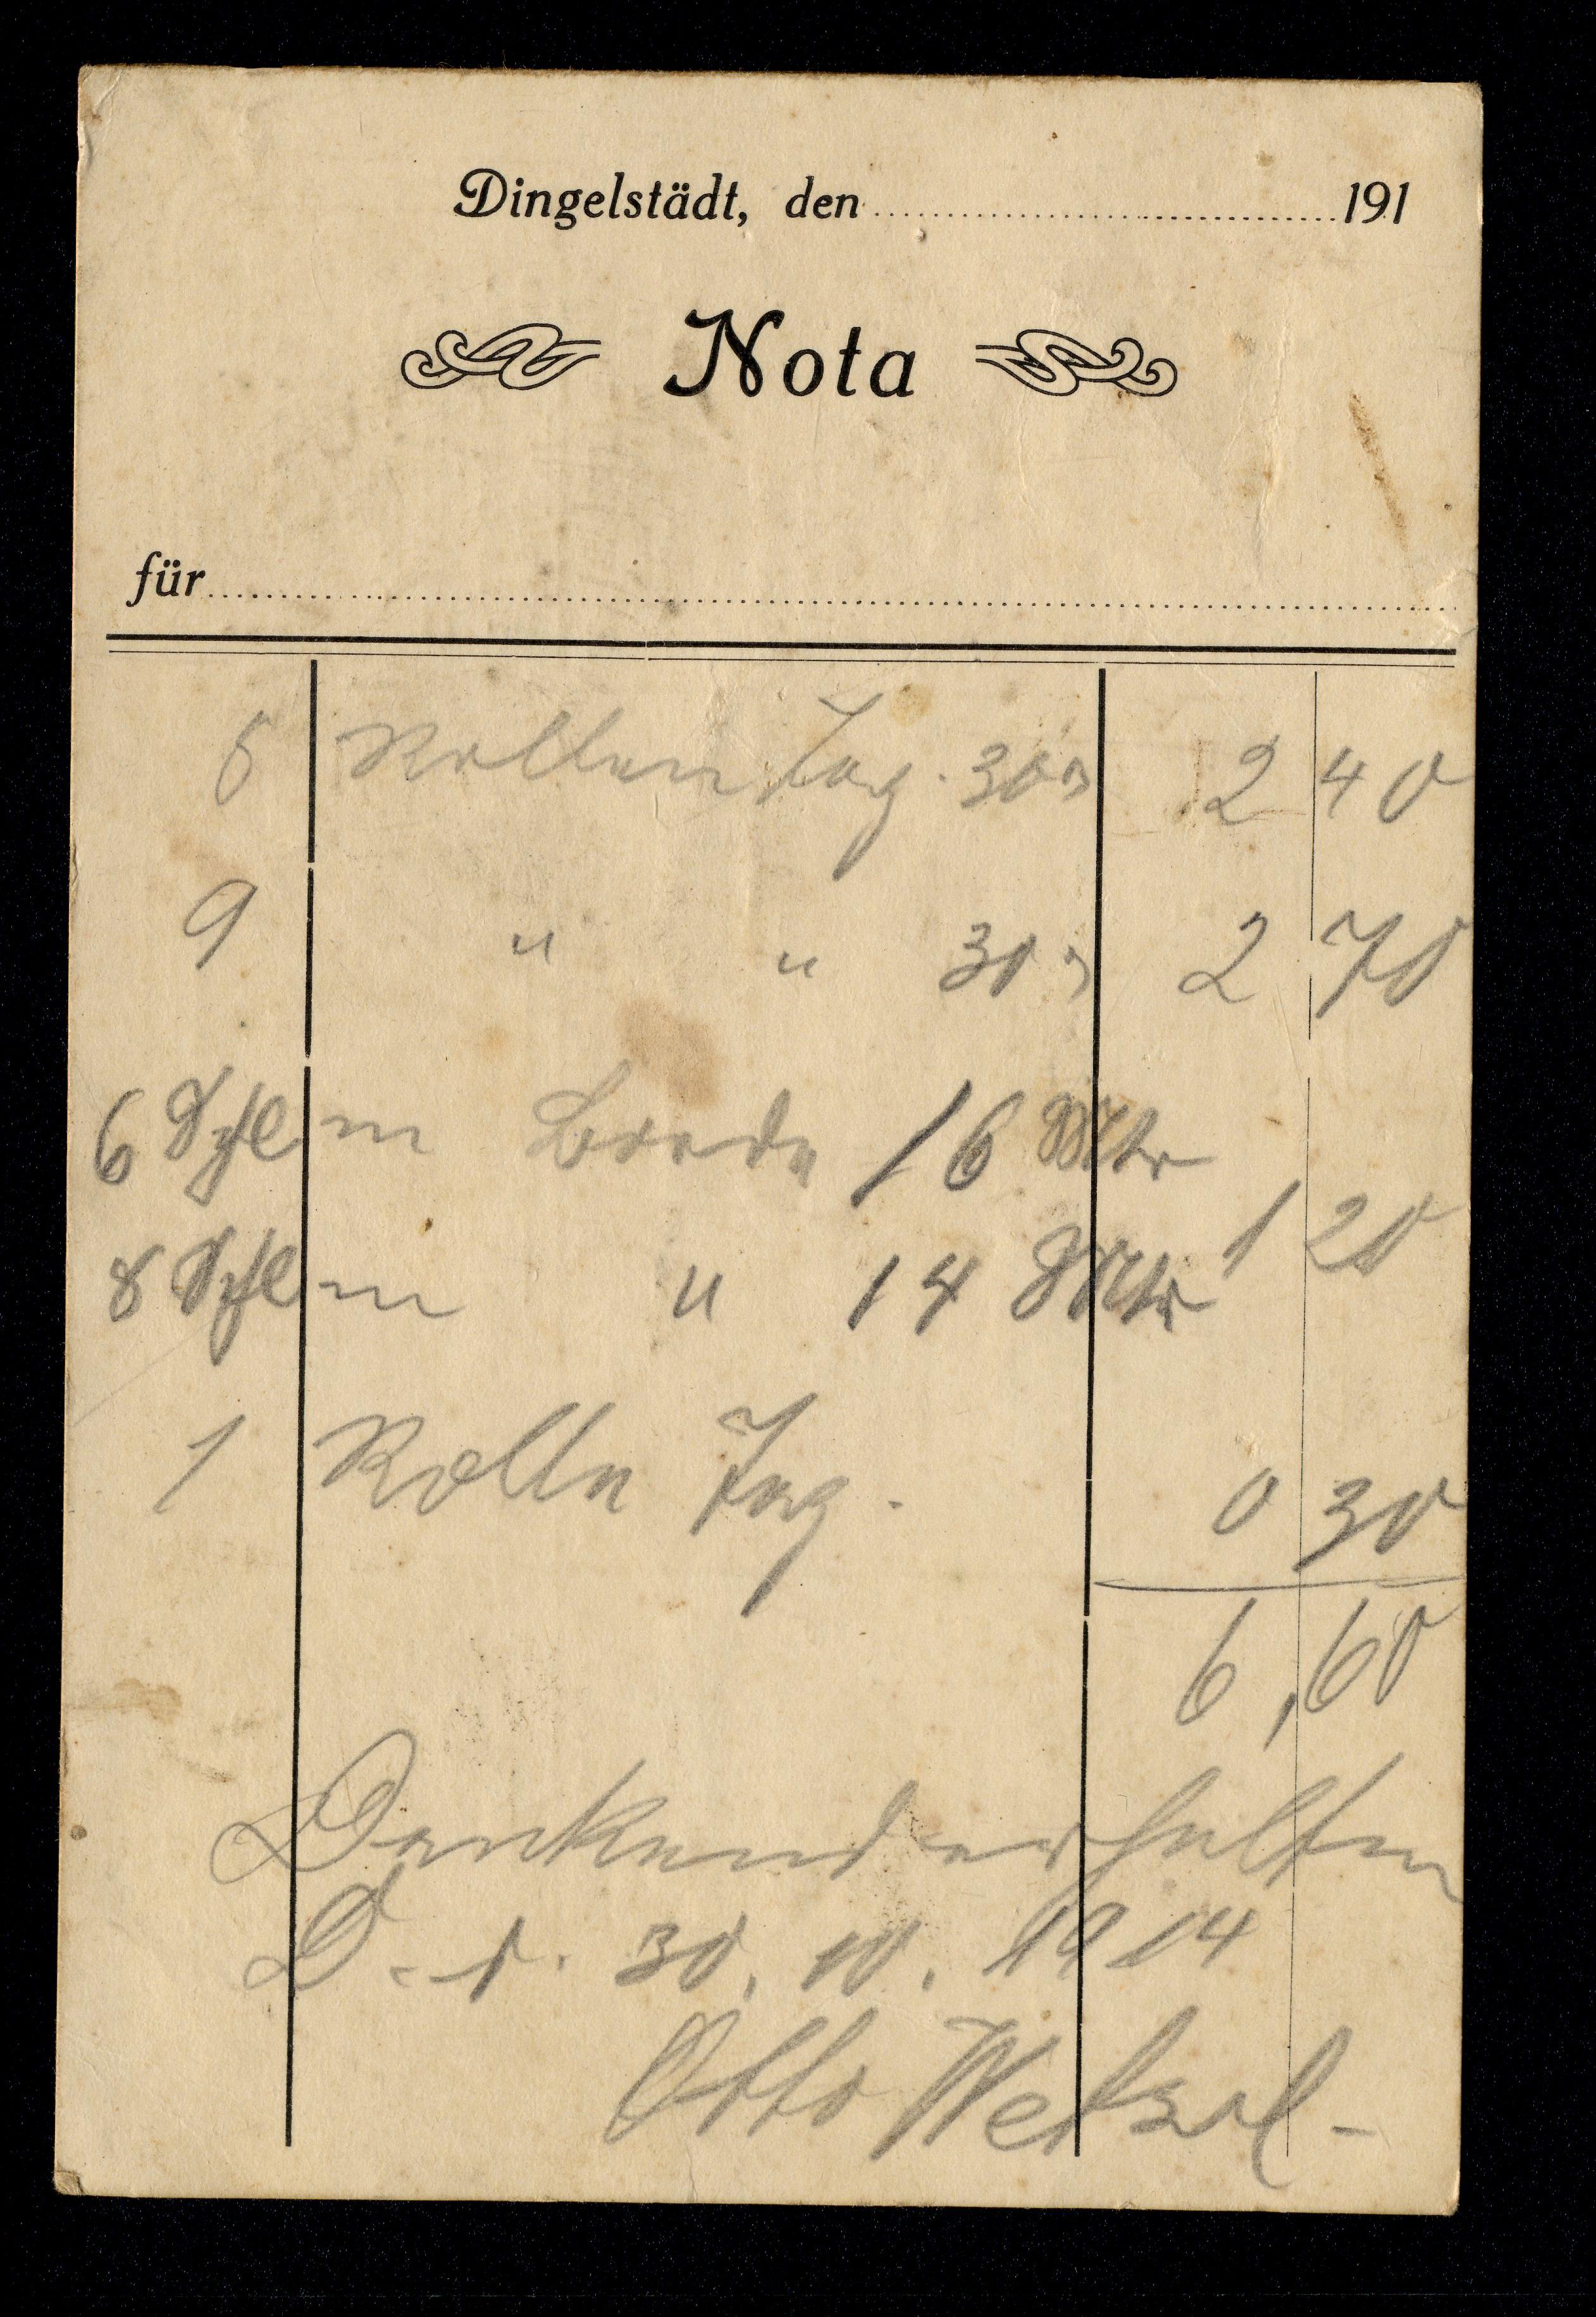 Dingelstädt, den 191
Nota
für
8 Rollen Tap. 30 2 40
9 " " 30 2 70
6 m Borde 16 Mtr
8 m " 14 Mtr 1 20
1 Rolle Tap. 0 30
6,60
Dankend erhalten
D. d. 30. 10. 1914
Otto Wetzel